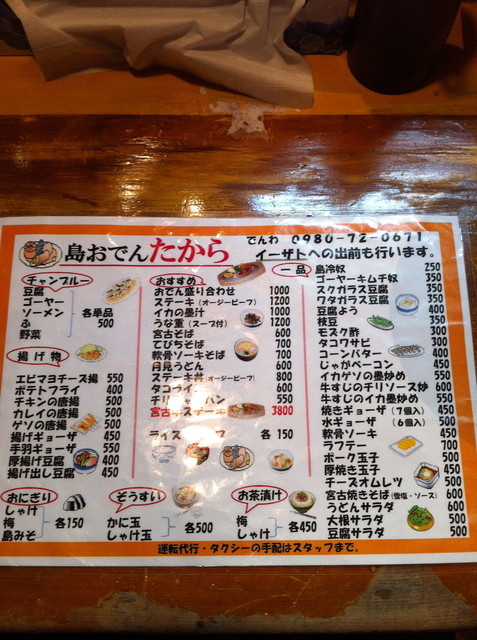 島おでんたから
でんわ 0980-72-0671
イーザトへの出前も行います。
チャンプルー
豆腐
ゴーヤー
ソーメン
ふ
野菜
各単品 500
揚げ物
エビマヨチーズ揚 550
ポテトフライ 400
チキンの唐揚 500
カレイの唐揚 500
ゲソの唐揚 500
揚げギョーザ 450
手羽ギョーザ 550
厚揚げ豆腐 400
揚げ出し豆腐 450
おすすめ
おでん盛り合わせ 1000
ステーキ(オージービーフ) 1200
イカの墨汁 1000
うな重(スープ付) 1200
宮古そば 600
てびちそば 700
軟骨ソーキそば 700
月見うどん 600
ステーキ丼(オージービーフ) 800
タコライス 600
宮古牛ステーキ 3800
各 150
一品
島冷奴 250
ゴーヤーキムチ奴 350
スクガラス豆腐 350
ワタガラス豆腐 350
豆腐よう 400
枝豆 350
モズク酢 300
タコワサビ 300
コーンバター 400
じゃがベーコン 450
イカゲソの墨炒め 550
牛すじのチリソース炒 600
牛すじのイカ墨炒め 550
焼きギョーザ(7個入) 450
水ギョーザ(6個入) 500
軟骨ソーキ 450
ラフテー 700
ポーク玉子 500
厚焼き玉子 450
チーズオムレツ 500
宮古焼きそば(雪塩・ソース) 600
うどんサラダ 600
大根サラダ 500
豆腐サラダ 500
おにぎり
しゃけ
梅
島みそ
各150
ぞうすい
かに玉
しゃけ玉
各500
お茶漬け
梅
しゃけ
各450
運転代行・タクシーの手配はスタッフまで。